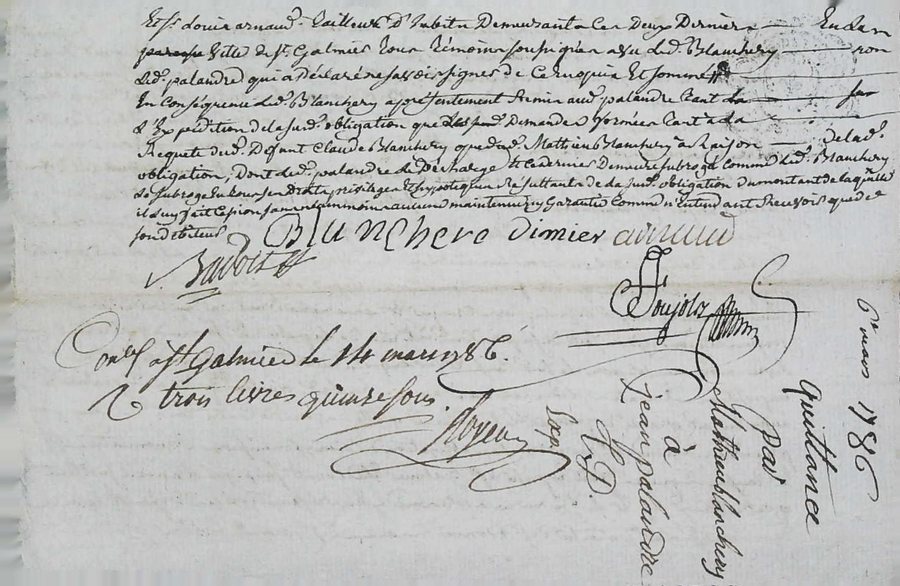 Et Sr. Louis arnaud. tailleur d'habits Demeurant a Ces Deux Dernier En la
paroisse Ville de St. Galmier tous témoins soussignes avec led. Blanchery non
led. palandre qui a Déclaré ne savoir signer de Ce Enquis Et sommé
En Conséquence led. Blanchery a présentement Remis aud. palandre tant la
d'Expédition de la susd. obligation que les Demandes formées tant a la
Requete dud. Defunt Claude Blanchery que dud. Mathieu Blanchery a Raison de lad.
obligation, Dont led. palandre le Décharge & Ce dernier Demeure subrogé Comme led. Blanchery
le subroge En tous ses droits privilege Et hypoteques Résultants de la susd. obligation du montant de laquelle
il luy fait Cession sans Neanmoins aucune maintenue ny Garantie Comme n'Entendant Recevoir que de
son débiteur
Blanchere dimier arnaud
Conlé a St Galmier le 14 mars 1786.
R trois livres quinze sous
6e mars 1786
Quittance
par
Mathieu blanchery
à
jean palandre
Exp